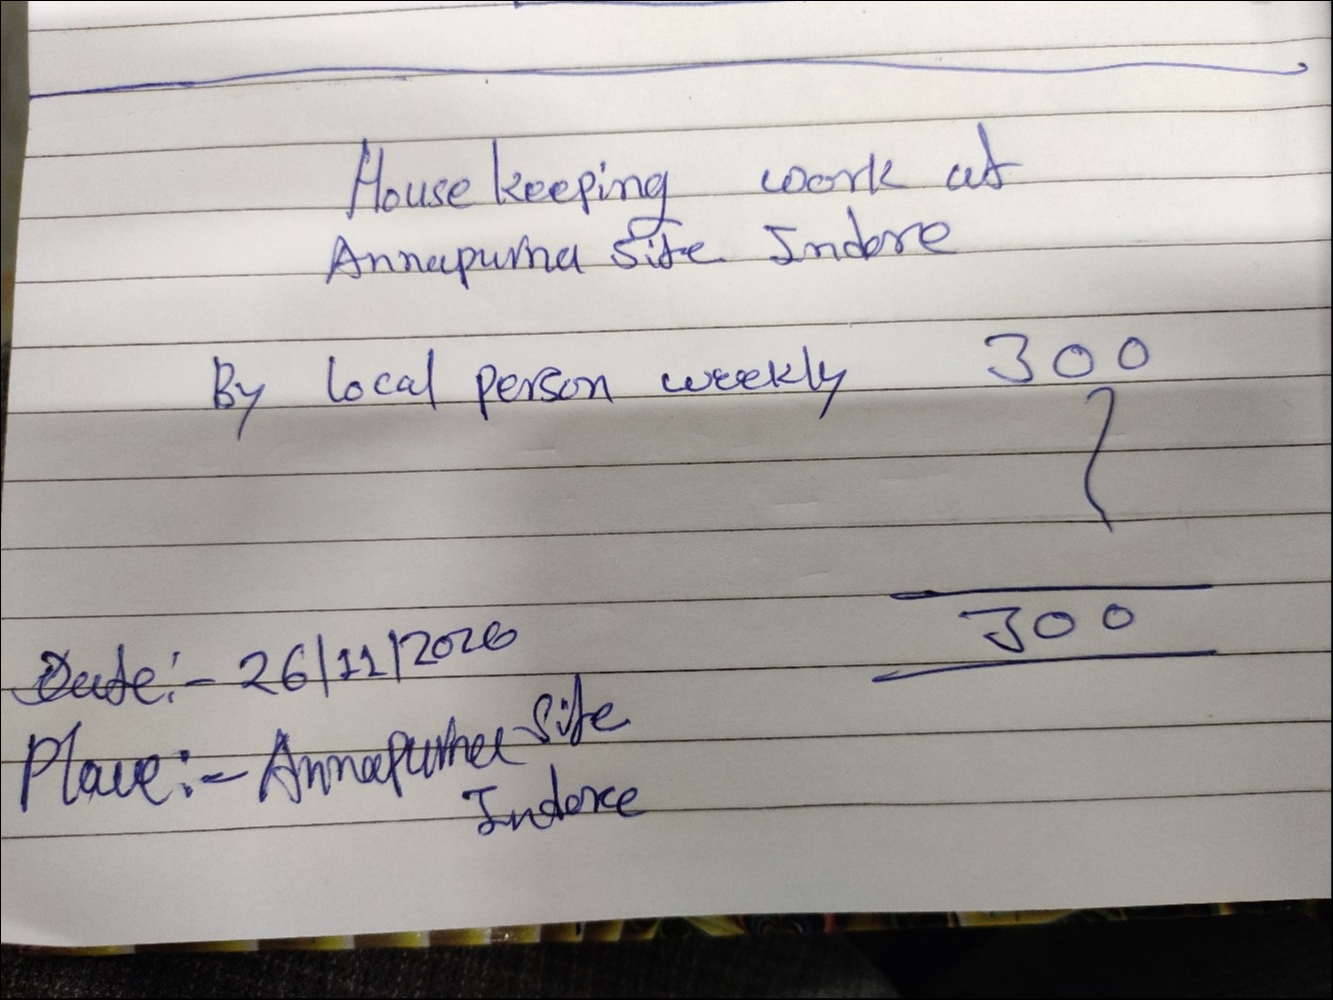 House keeping work at
Annapurna Site Indore
By local person weekly 300
300
Date:- 26/11/2020
Place:- Annapurna Site
Indore